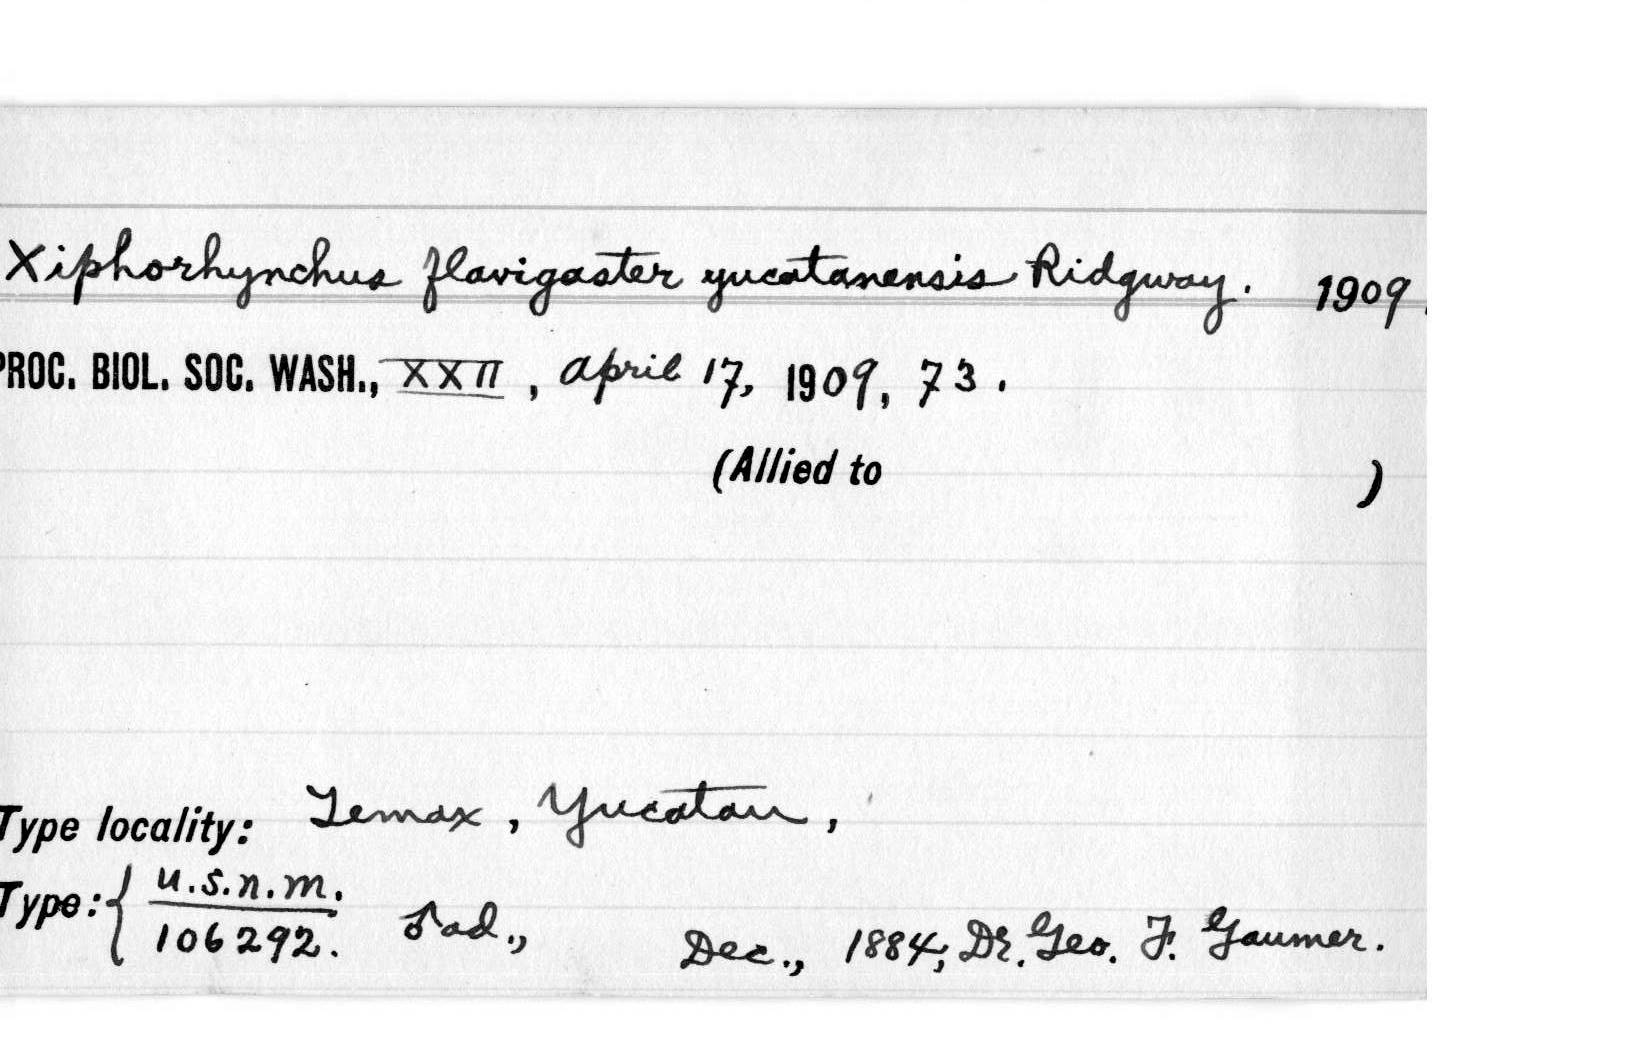 Xiphorhynchus flavigaster yucatanensis Ridgway. 1909.
PROC. BIOL. SOC. WASH., XXII, April 17, 1909, 73.
(Allied to )
Type locality: Temax, Yucatan,
Type: { U.S.N.M.
106292. ♂ad., Dec., 1884; Dr. Geo. F. Gaumer.